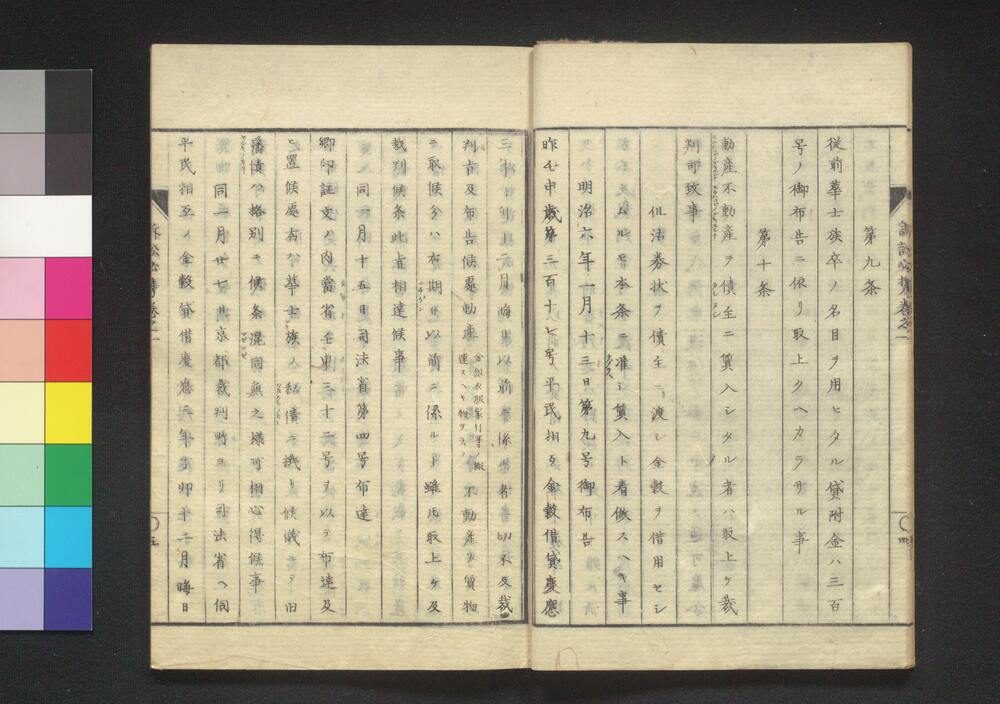 第九条
従前華士族卒ノ名目ヲ用ヒタル貸附金ハ三百
号ノ御布告ニ依リ取上クヘカラサル事
第十条
動産不動産ヲ債主ニ質入シタル者ハ取上ケ裁
判可致事
但沽券状ヲ債主ニ渡シ金穀ヲ借用セシ
モ本条ニ准シ質入ト看做スヘキ事
明治六年一月十三日第九号御布告
昨壬申歳第三百十七号平民相互金穀借貸慶應
三年丁卯十二月晦日以前ニ係ル者ハ一切不及裁
判旨及布告候処動産 不動産ヲ質物
ニ取候分ハ布期日以前ニ係ルト雖モ取上ケ及
裁判候条此旨相達候事
同二月十五日司法省第四号布達
卿印証文ノ内當省壬申三十二号ヲ以テ布達及
ヒ置候処右ハ華士族ノ私債ニ限リ候儀ニテ旧
藩債ハ格別ニ候条混同無之様可相心得候事
同二月廿七日京都裁判所ヨリ司法省ヘ伺
平民相互ノ金穀貸借慶應三年丁卯十二月晦日
訴訟必携巻之一